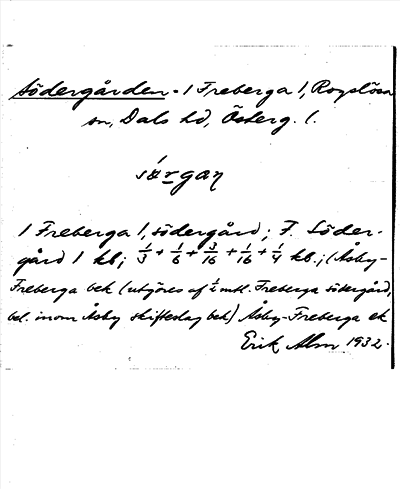 Södergården - 1 Freberga 1, Rogslösa
sn, Dals hd, Österg. l.
1 Freberga 1, södergård; F. Söder-
gård 1 kb; 1/3 + 1/6 + 3/16 + 1/16 + 1/4 kb.; (Åsby-
Freberga bek (utgöres af 1/2 mtl. Freberga södergård,
bel. inom Åsby skifteslag bek) Åsby-Freberga ek
Erik Alm 1932.